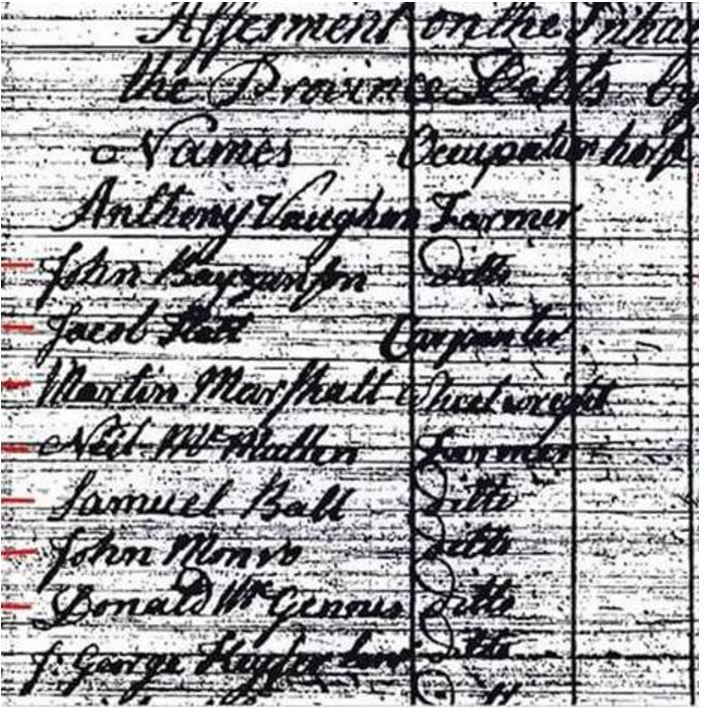 Assesment on the Inha
the Province Debts by
Names Occupation
Anthony Vaughan Farmer
John Ditto
Jacob Carpenter
Martin Marshall Wheelwright
Neil Mc Mullen Farmer
Samuel Ball Ditto
John Monro Ditto
Donald Mc Ginnis Ditto
George Ditto